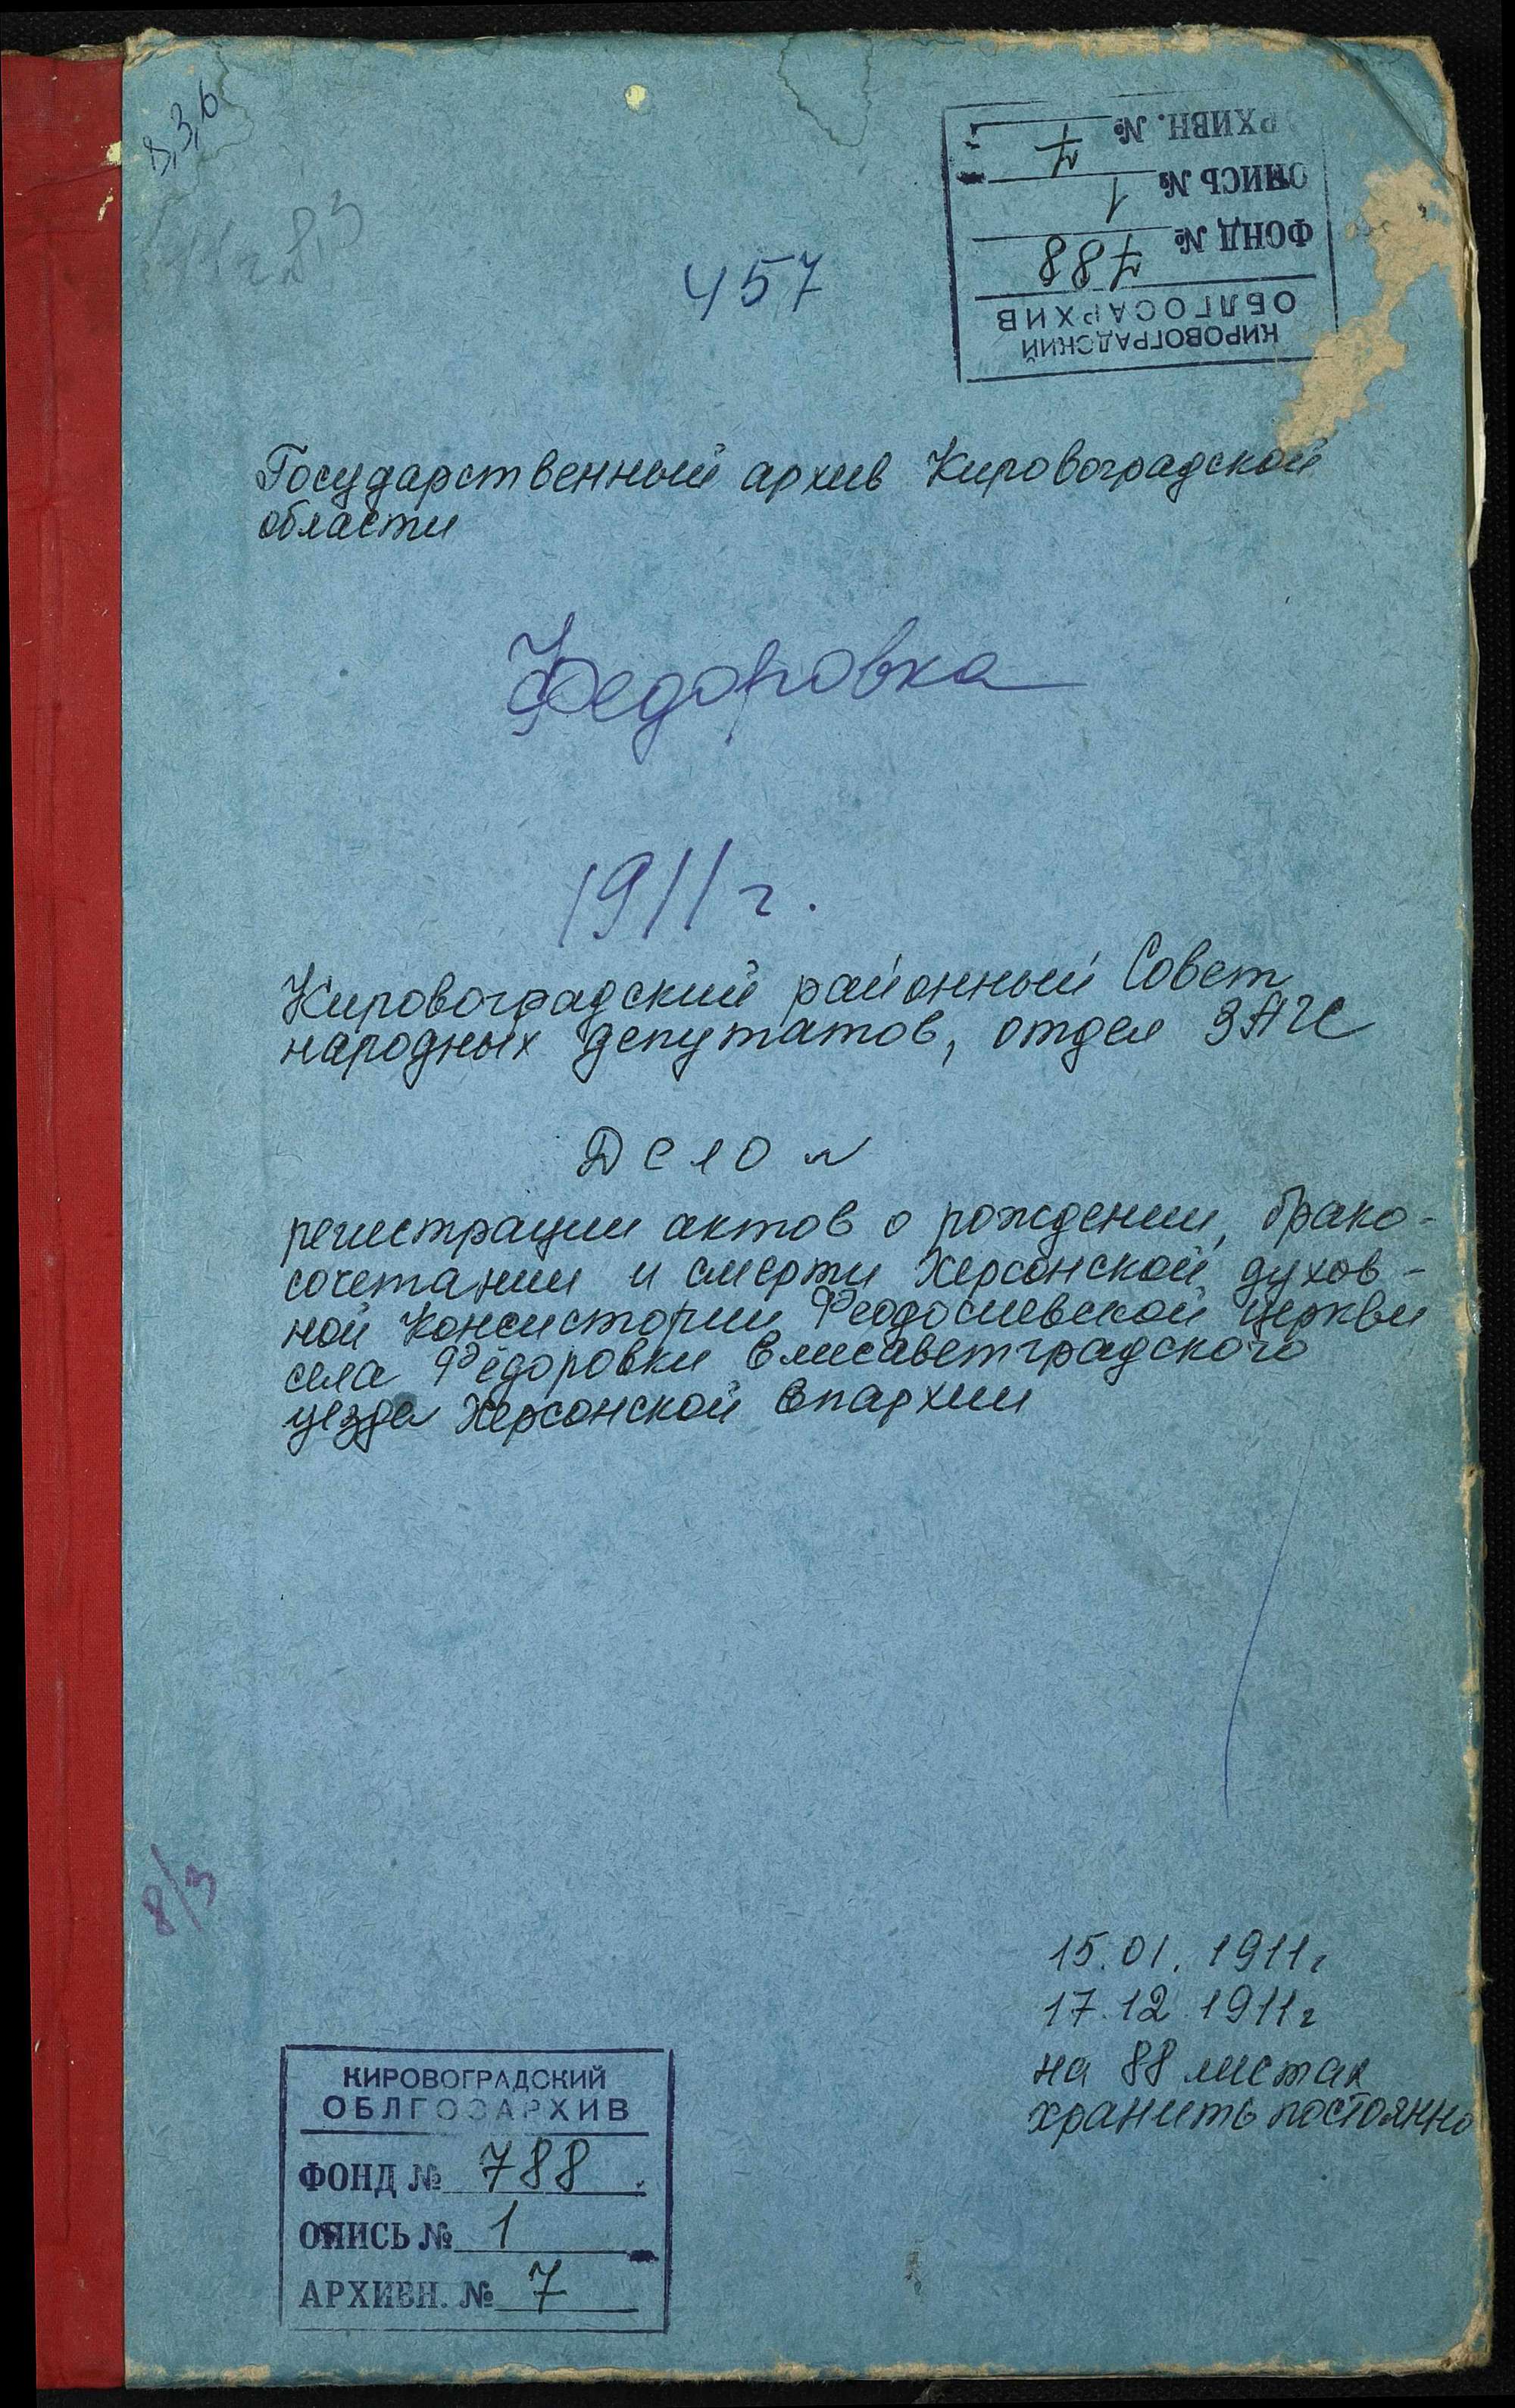 в, з, б
457
КИРОВОГРАДСКИЙ
ОБЛГОСАРХИВ
ФОНД № 788
ОПИСЬ № 1
АРХИВН. № 7
Государственный архив Кировоградской
области
Федоровка
1911 г.
Кировоградский районный Совет
народных депутатов, отдел ЗАГС
Дело №
регистрации актов о рождении, брако-
сочетании и смерти Херсонской духов-
ной Консистории Феодосиевской церкви
села Фёдоровки Елисаветградского
уезда Херсонской Епархии
8/3
15.01.1911г
17.12.1911г
на 88 листах
хранить постоянно
КИРОВОГРАДСКИЙ
ОБЛГОСАРХИВ
ФОНД № 788
ОПИСЬ № 1
АРХИВН. № 7